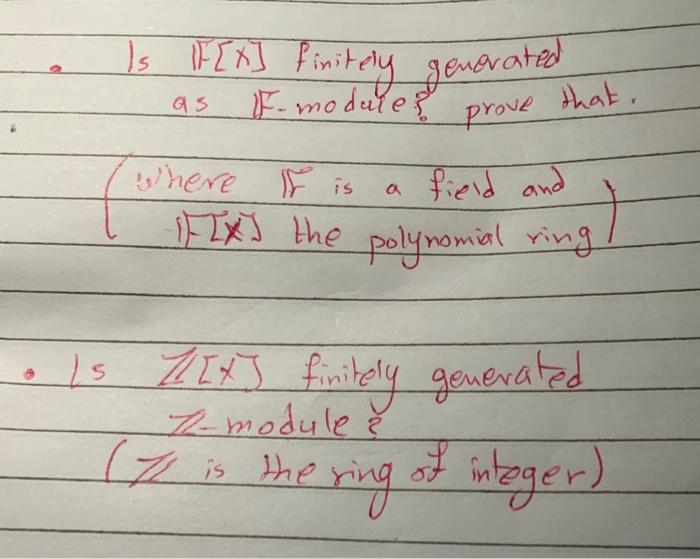 • Is 𝔽[x] finitely generated
as 𝔽-module? prove that.
(where 𝔽 is a field and
𝔽[x] the polynomial ring)
• Is ℤ[x] finitely generated
ℤ-module?
(ℤ is the ring of integer)